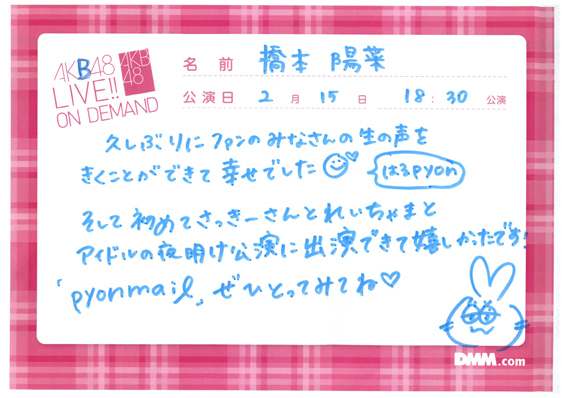 AKB48
LIVE!!
ON DEMAND
AKB
48
名前 橋本 陽菜
公演日 2月 15日 18:30 公演
久しぶりにファンのみなさんの生の声を
きくことができて幸せでした
はるpyon
そして初めてさっきーさんとれいちゃまと
アイドルの夜明け公演に出演できて嬉しかったです!
「pyonmail」ぜひとってみてね♡
DMM.com